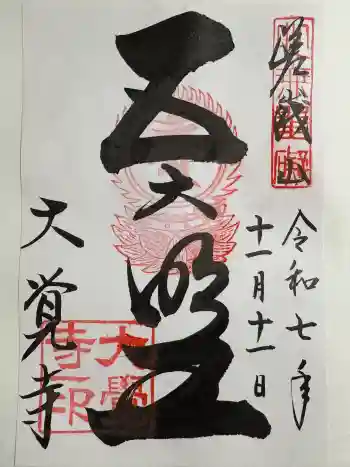 嵯峨山
令和七年
十一月十一日
五大明王
大覚寺
大覺
寺印